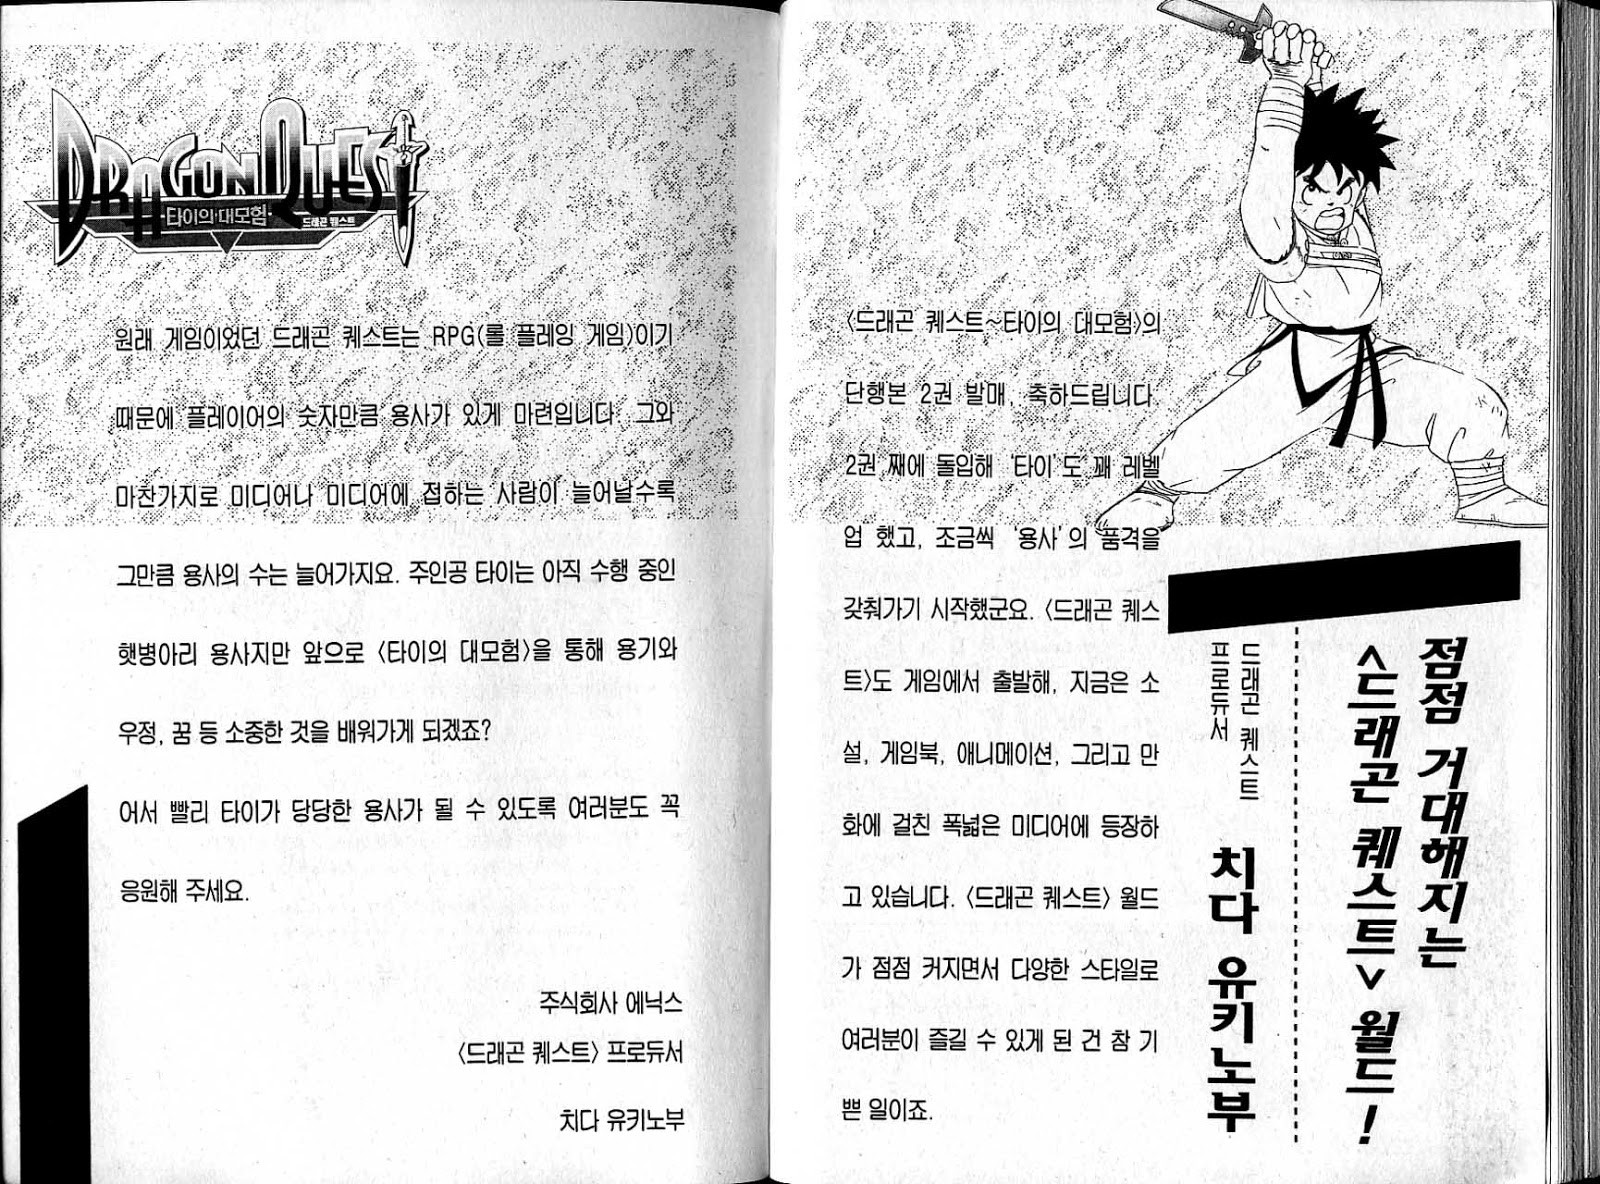 점점 거대해지는
<드래곤 퀘스트> 월드!
드래곤 퀘스트
프로듀서
치다 유키노부
〈드래곤 퀘스트~타이의 대모험〉의
단행본 2권 발매, 축하드립니다.
2권 째에 돌입해 '타이'도 꽤 레벨
업 했고, 조금씩 '용사'의 품격을
갖춰가기 시작했군요. 〈드래곤 퀘스
트〉도 게임에서 출발해, 지금은 소
설, 게임북, 애니메이션, 그리고 만
화에 걸친 폭넓은 미디어에 등장하
고 있습니다. 〈드래곤 퀘스트〉 월드
가 점점 커지면서 다양한 스타일로
여러분이 즐길 수 있게 된 건 참 기
쁜 일이죠.
DRAGON QUEST
타이의 대모험
드래곤 퀘스트
원래 게임이었던 드래곤 퀘스트는 RPG(롤 플레잉 게임)이기
때문에 플레이어의 숫자만큼 용사가 있게 마련입니다. 그와
마찬가지로 미디어나 미디어에 접하는 사람이 늘어날수록
그만큼 용사의 수는 늘어가지요. 주인공 타이는 아직 수행 중인
햇병아리 용사지만 앞으로 〈타이의 대모험〉을 통해 용기와
우정, 꿈 등 소중한 것을 배워가게 되겠죠?
어서 빨리 타이가 당당한 용사가 될 수 있도록 여러분도 꼭
응원해 주세요.
주식회사 에닉스
〈드래곤 퀘스트〉 프로듀서
치다 유키노부